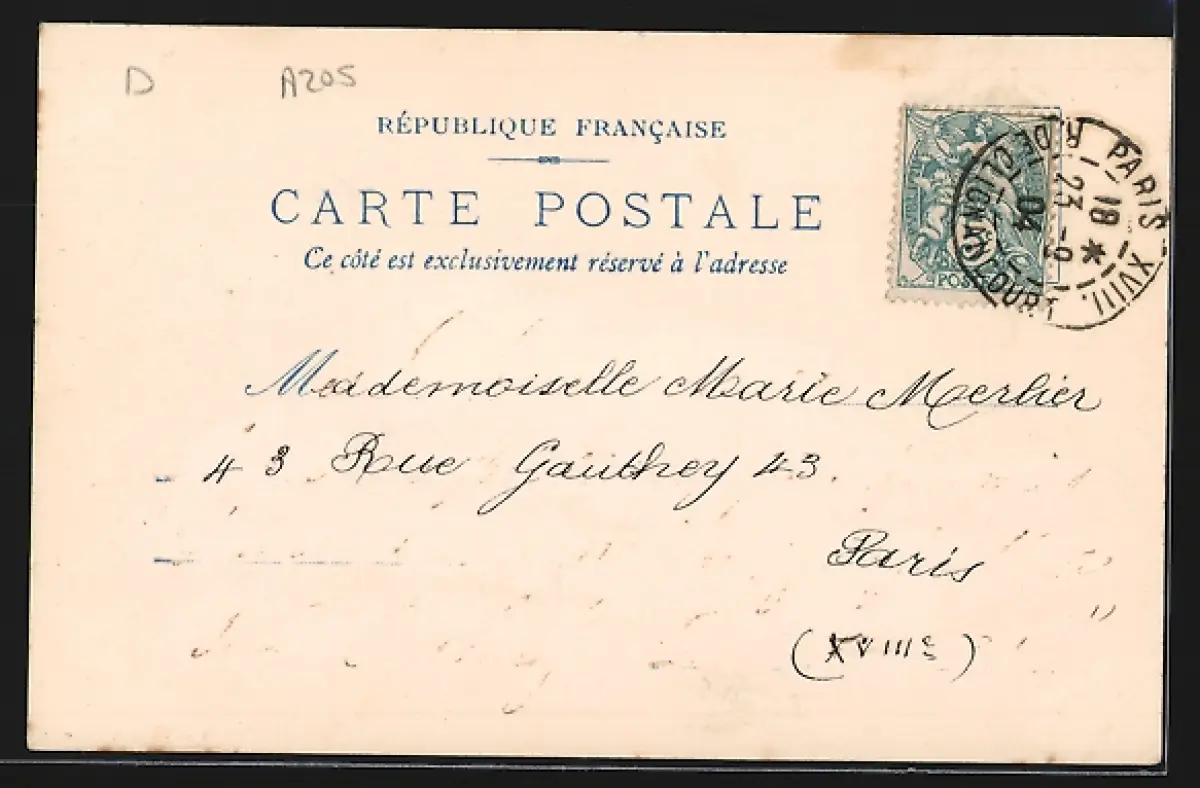 D A205
RÉPUBLIQUE FRANÇAISE
CARTE POSTALE
Ce côté est exclusivement réservé à l'adresse
PARIS - XVIII.
R. DE CLIGNANCOURT
18 *
23 - 9
04
POSTES
Mademoiselle Marie Merlier
43 Rue Gauthey 43.
Paris
"
(XVIIIe)